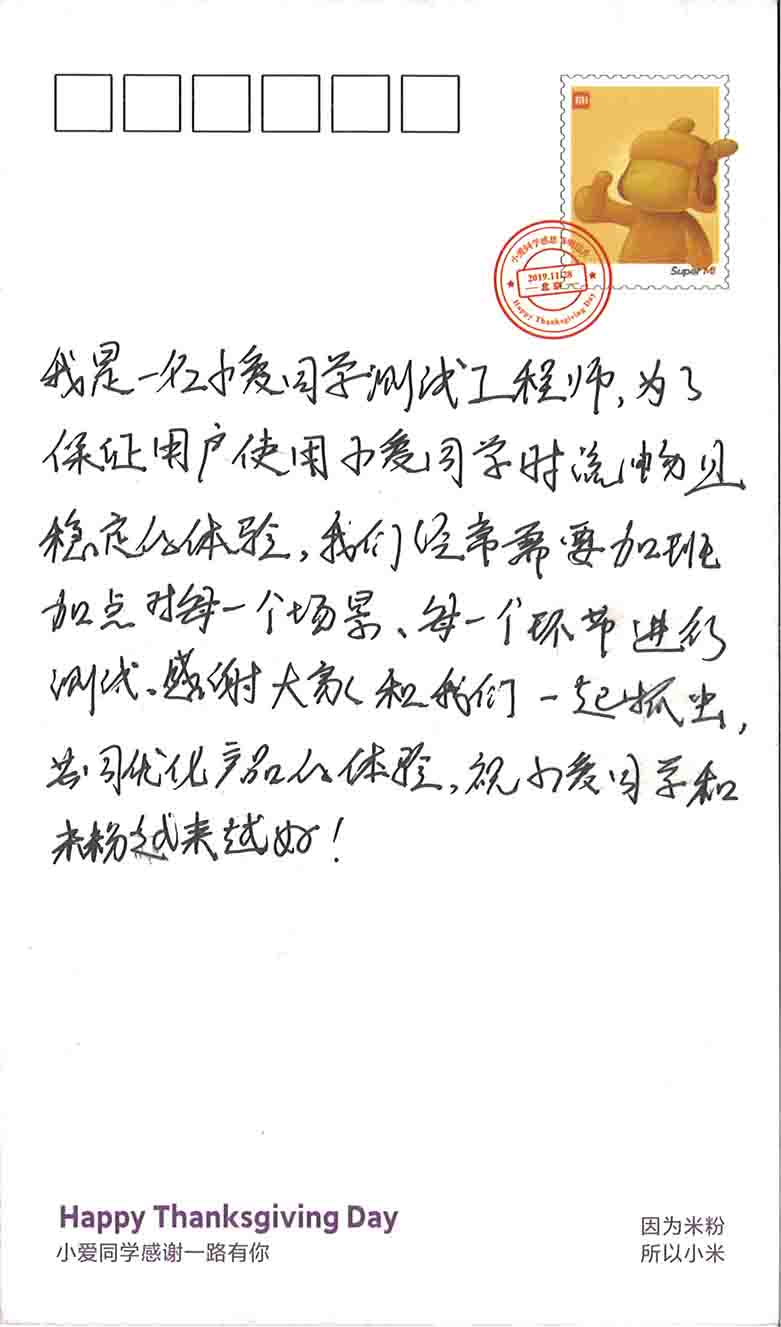 MI
Super MI
小爱同学感恩
2019.11.28
北京
Happy Thanksgiving Day
我是一名小爱同学测试工程师,为了
保证用户使用小爱同学时流畅且
稳定的体验,我们经常需要加班
加点对每一个场景、每一个环节进行
测试。感谢大家和我们一起抓虫,
共同优化产品的体验,祝小爱同学和
米粉越来越好!
Happy Thanksgiving Day
小爱同学感谢一路有你
因为米粉
所以小米